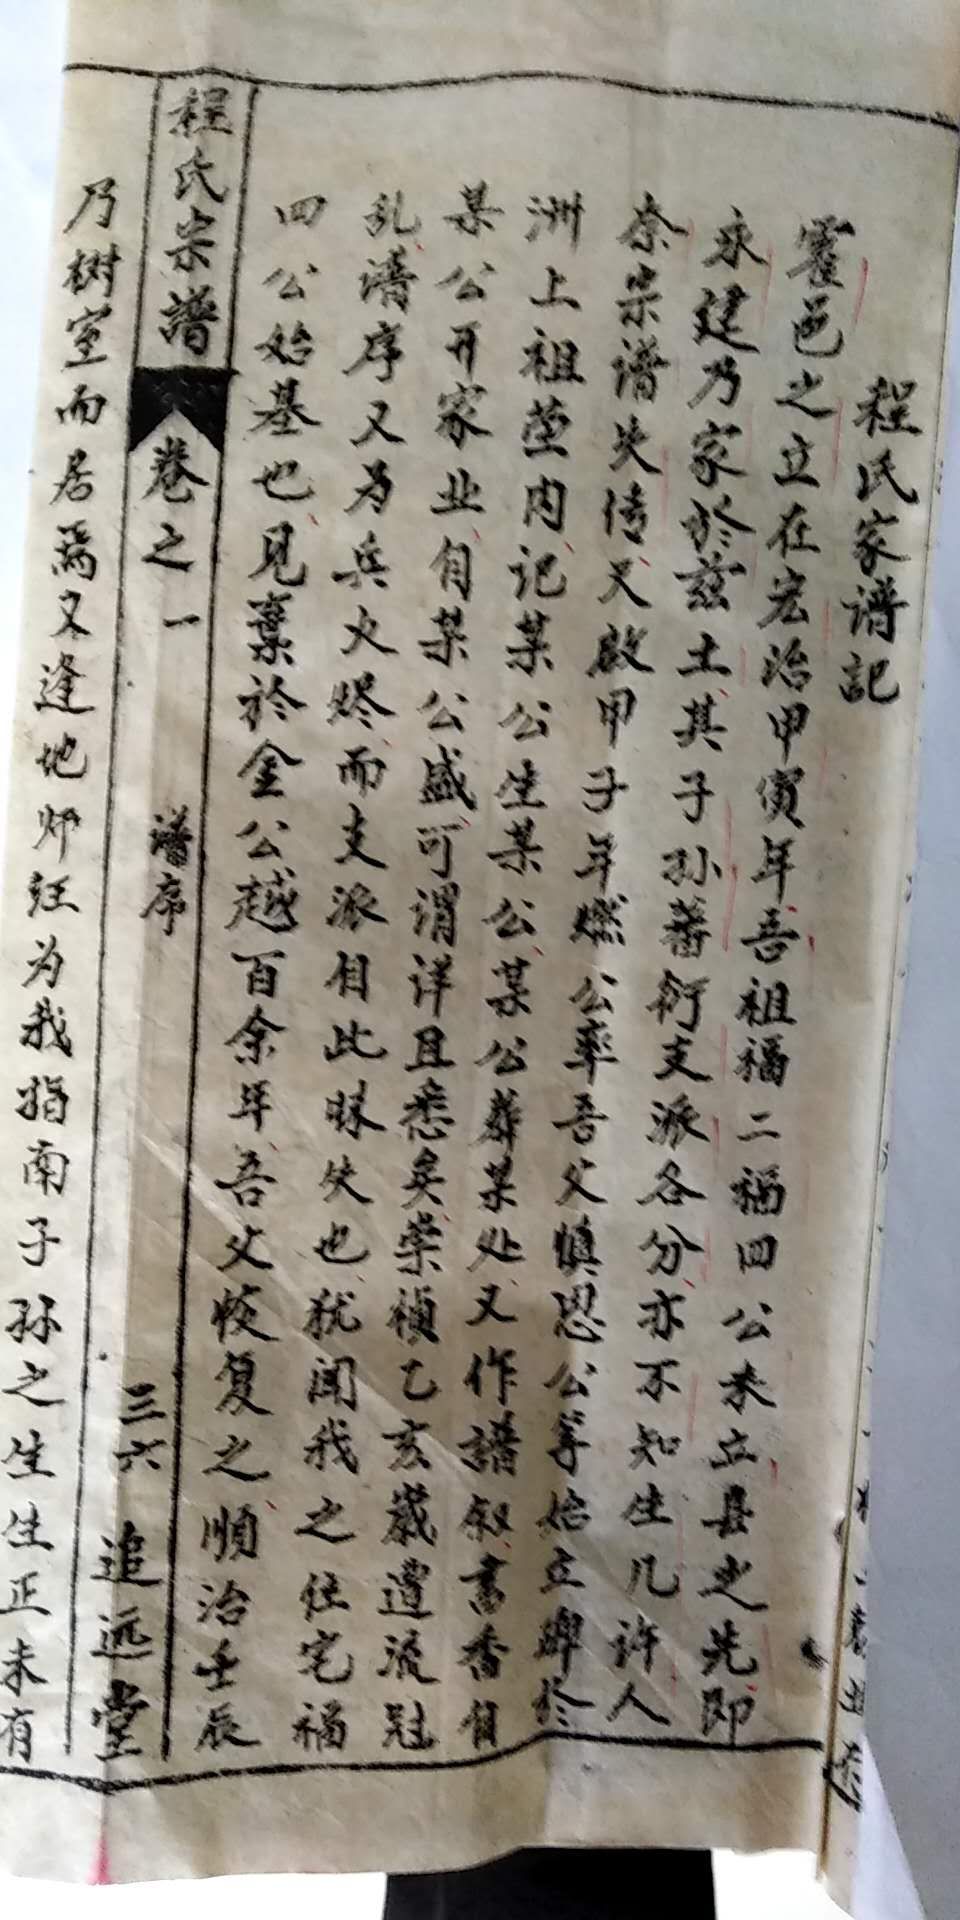 程氏家谱记
霍邑之立在宏治甲寅年吾祖福二福四公未立县之先即
来建乃家於兹土其子孙蕃衍支派各分亦不知生几许人
奈宗谱失传天啟甲子年燃公率吾父慎思公等始立碑於
洲上祖茔内记某公生某公某公葬某处又作谱叙书香自
某公开家业自某公盛可谓详且悉矣崇祯乙亥歲遭流冠
乱谱序又为兵火烬而支派自此昧失也犹闻我之住宅福
四公始基也见棄於金公越百余年吾父恢复之順治壬辰
程氏宗譜 卷之一 谱序 三六 追远堂
乃树室而居焉又逢地师汪为我指南子孙之生生正未有